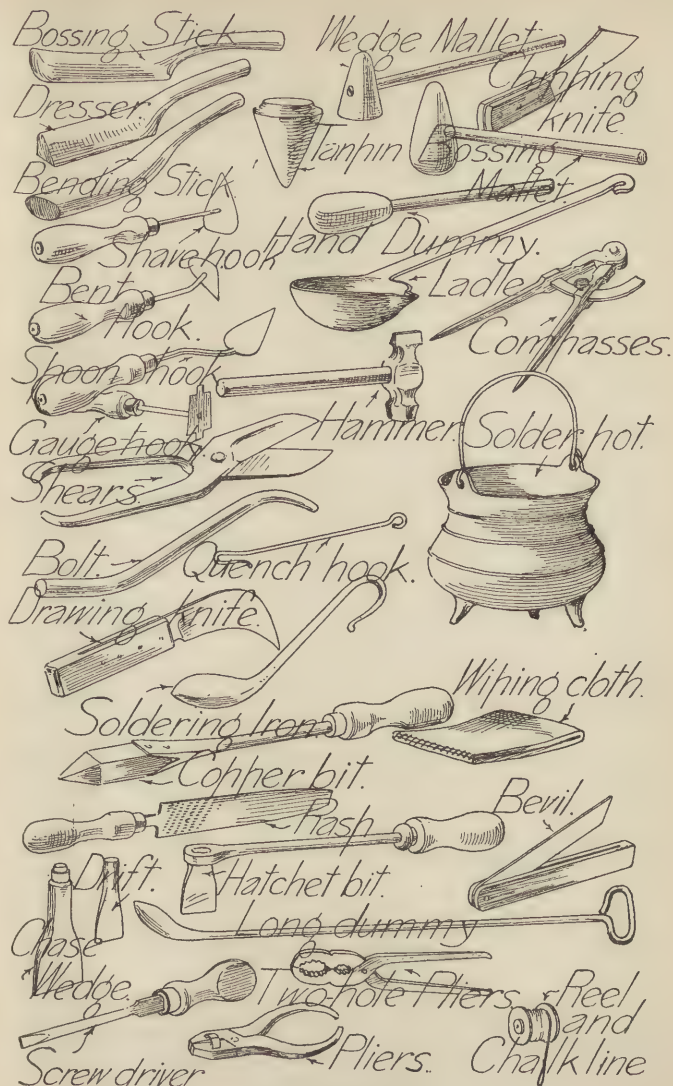 Bossing Stick
Wedge Mallet.
Chipping
knife.
Dresser.
Tanpin
Bossing
Mallet.
Bending Stick.
Shavehook
Hand Dummy.
Bent
Hook.
Ladle
Compasses.
Spoon hook
Gauge hook.
Hammer.
Solder pot.
Shears.
Bolt.
Quench hook.
Drawing knife.
Soldering Iron
Wiping cloth.
Copper bit.
Rasp
Bevil.
Drift.
Hatchet bit.
Chase
Wedge.
Long dummy
Two-hole Pliers
Reel
and
Chalk line
Screw driver
Pliers.